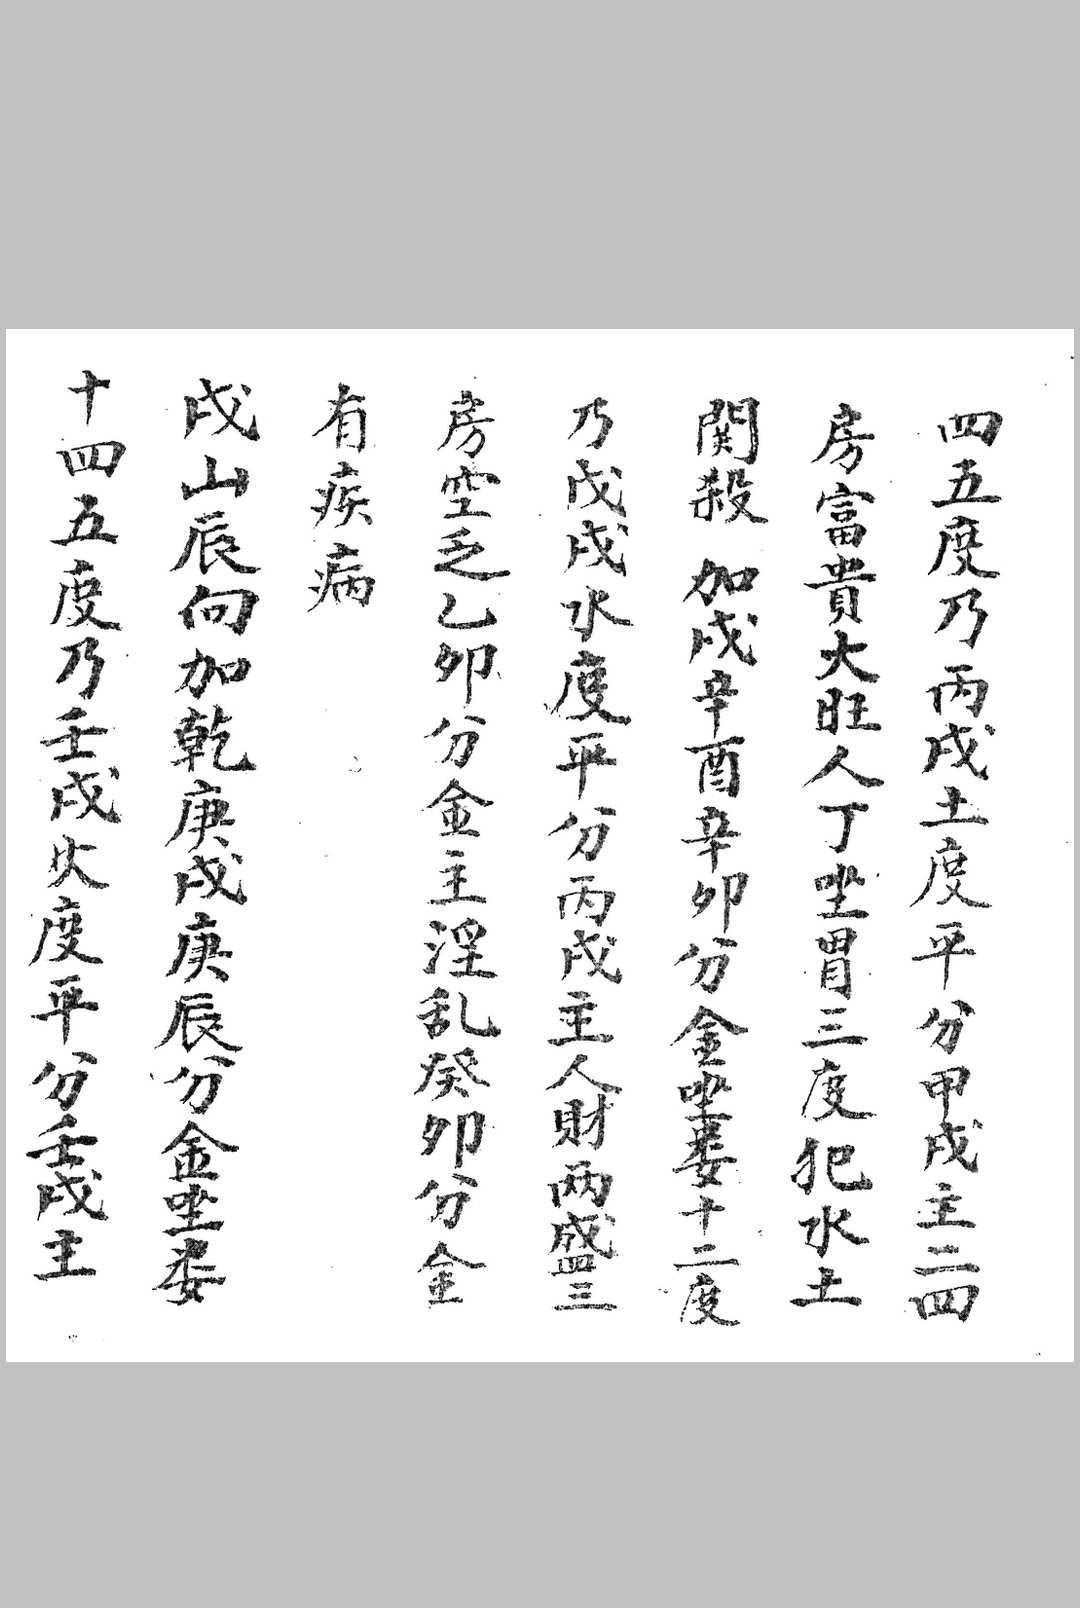 四五度乃丙戌土度平分甲戌主二四
房富貴大旺人丁坐胃三度犯水土
関殺 加戌辛酉辛卯分金坐婁十二度
乃戊戌水度平分丙戌主人財两盛三
房空乏乙卯分金主淫乱癸卯分金
有疾病
戌山辰向加乾庚戌庚辰分金坐婁
十四五度乃壬戌火度平分壬戌主